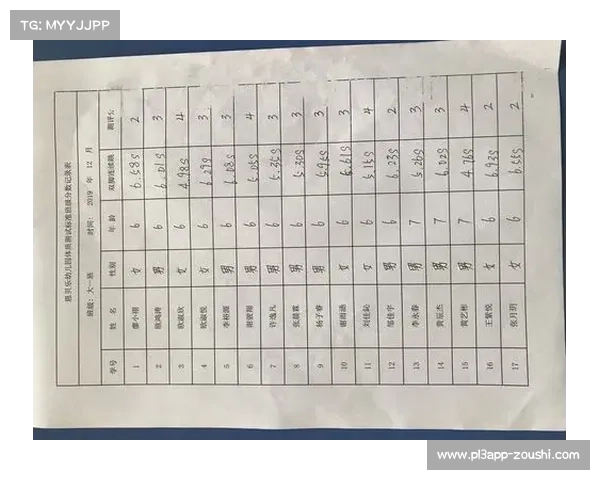 TG: MYYJJPP
恩贝乐幼儿园体质测试标准班级分数记录表
班级: 大一班 时间: 2019 年 12 月
学号 姓 名 性别 年 龄 双脚连续跳 测评分
1 廖小栩 女 6 6.58s 2
2 欧鸿涛 男 6 6.01s 3
3 欧淑欣 女 6 4.98s 4
4 欧淑悦 女 6 6.29s 3
5 李裕源 男 6 6.08s 3
6 谢贺翔 男 6 5.05s 4
7 许逸凡 男 6 5.35s 3
8 张晨霖 男 6 5.30s 3
9 杨子睿 男 6 5.95s 3
10 谢雨涵 女 6 5.61s 3
11 刘佳妘 女 6 5.15s 4
12 邹佳宇 男 6 6.23s 2
13 李永春 男 7 5.26s 3
14 黄辰杰 男 7 6.02s 3
15 黄艺彬 男 7 4.76s 4
16 王紫悦 女 6 6.93s 2
17 张月玥 女 6 6.55s 2
www.pl3app-zoushi.com